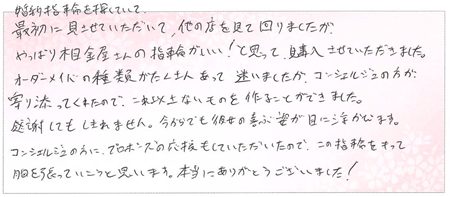 婚約指輪を探していて、
最初に見させていただいて、他の店を見て回りましたが、
やっぱり杢目金屋さんの指輪がいい!と思って、購入させていただきました。
オーダーメイドの種類がたくさんあって迷いましたが、コンシェルジュの方が
寄り添ってくれたので、これ以上ないものを作ることができました。
感謝してもしきれません。今からでも彼女の喜ぶ姿が目に浮かびます。
コンシェルジュの方に、プロポーズの応援もしていただいたので、この指輪をもって
胸を張っていこうと思います。本当にありがとうございました!